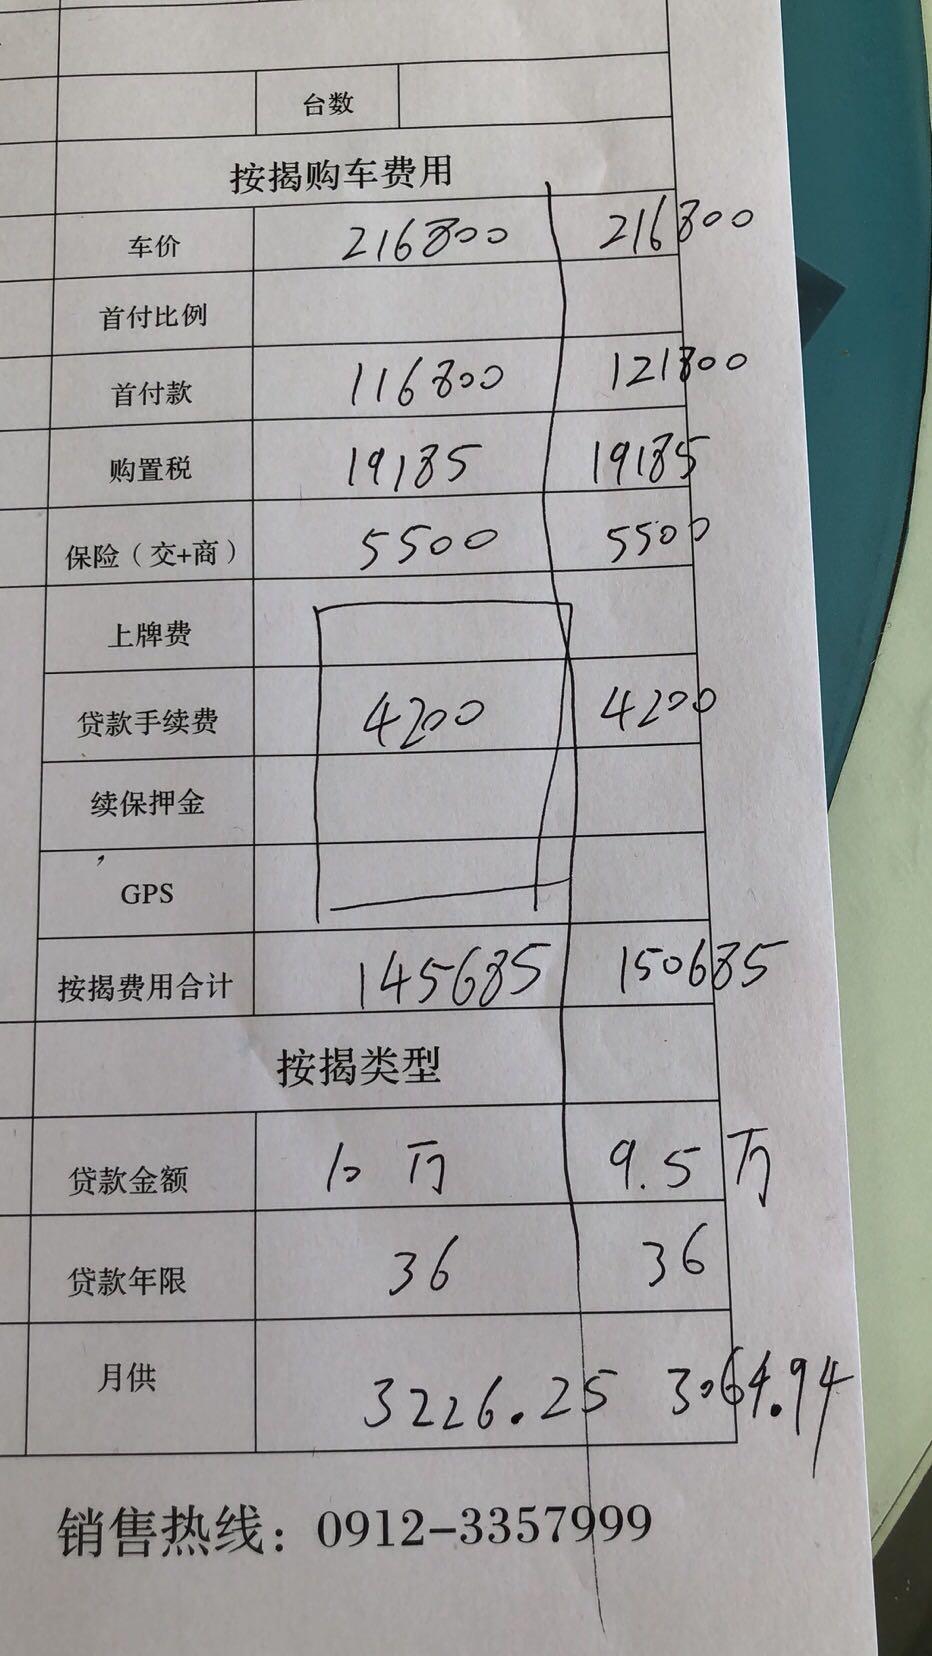 台数
按揭购车费用
车价 216800 216800
首付比例
首付款 116800 121800
购置税 19185 19185
保险（交+商） 5500 5500
上牌费
贷款手续费 4200 4200
续保押金
GPS
按揭费用合计 145685 150685
按揭类型
贷款金额 10万 9.5万
贷款年限 36 36
月供 3226.25 3064.94
销售热线：0912-3357999